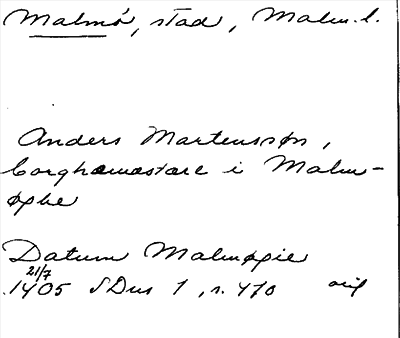 Malmö, stad, Malm.l.
Anders Martenssøn,
borghamestare i Malm-
øghe
Datum Malmøgie
21/7
1405 SDns 1, s. 470 orig